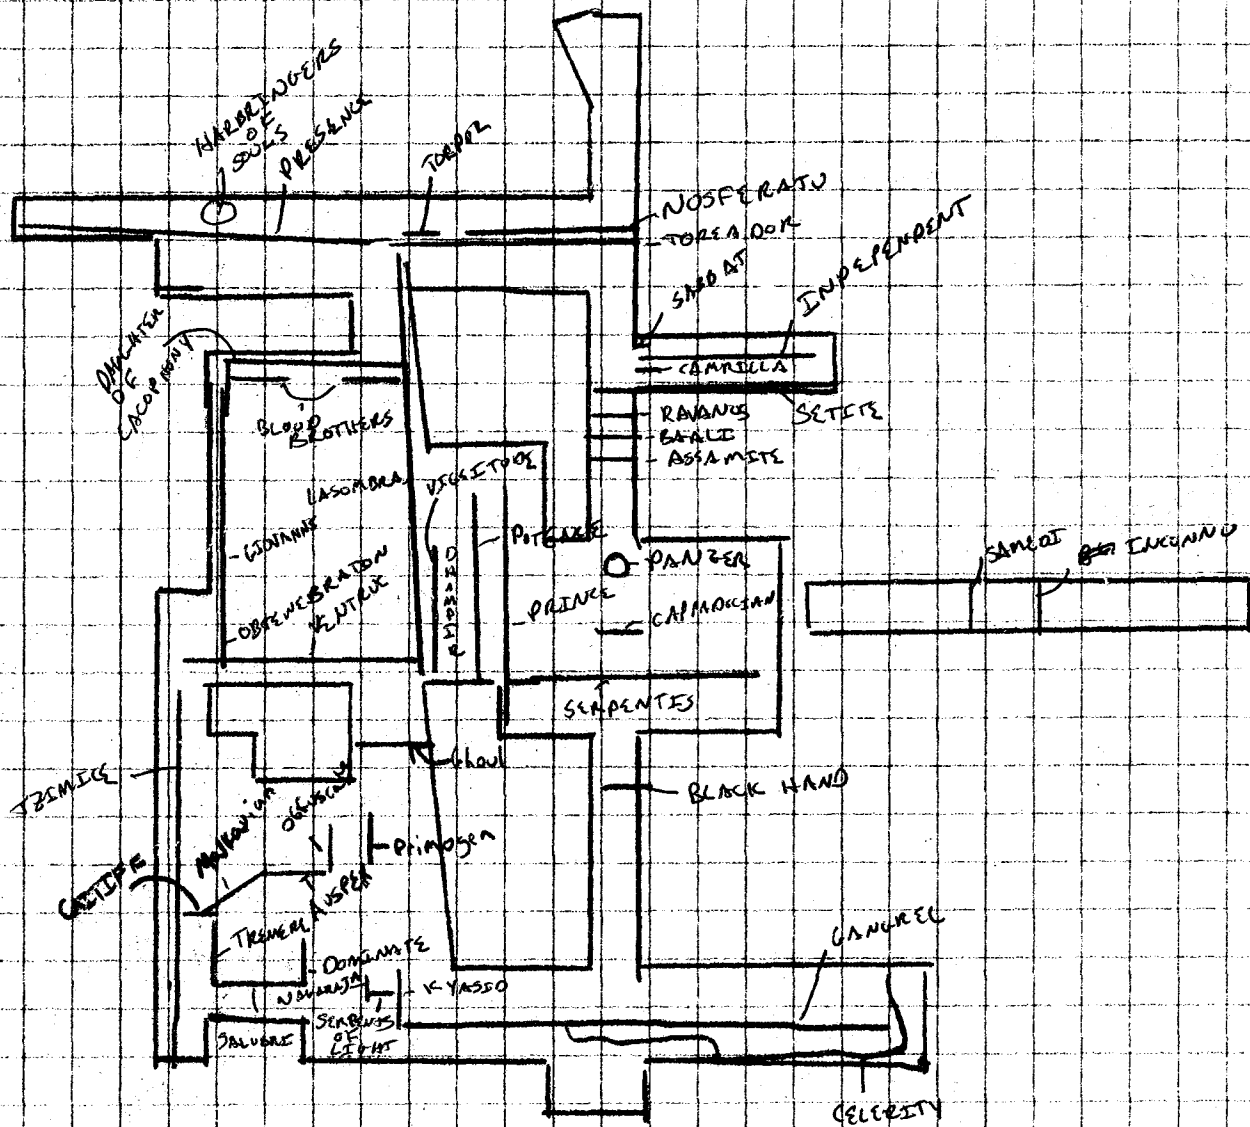 HARBRINGERS
OF
SOULS
PRESENCE
TORPOR
NOSFERATU
TOREADOR
SABBAT
INDEPENDENT
CAMRILLA
SETITE
DAUGHTER
OF
CACOPHONY
BLOOD
BROTHERS
RAVANOS
BAALI
ASSAMITE
LASOMBRA
VICSITUDE
GIOVANNI
POTENCE
DHAMPIR
PANZER
SAMEDI
INCONNU
OBTENEBRATION
VENTRUE
PRINCE
CAPPADOCIAN
SERPENTIS
TZIMICE
Ghoul
BLACK HAND
Malkavian
OBFUSCATE
Primogen
CAITIFF
AUSPEX
TREMERE
DOMINATE
GANGREL
NAGARAJA
KYASID
SALUBRI
SERPENTS
OF
LIGHT
CELERITY